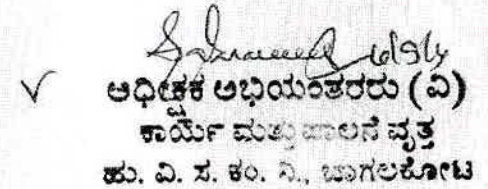 6/9/14
✓ ಅಧೀಕ್ಷಕ ಅಭಿಯಂತರರು (ವಿ)
ಕಾರ್ಯ ಮತ್ತು ಪಾಲನೆ ವೃತ್ತ
ಹು. ವಿ. ಸ. ಕಂ. ನಿ., ಬಾಗಲಕೋಟ